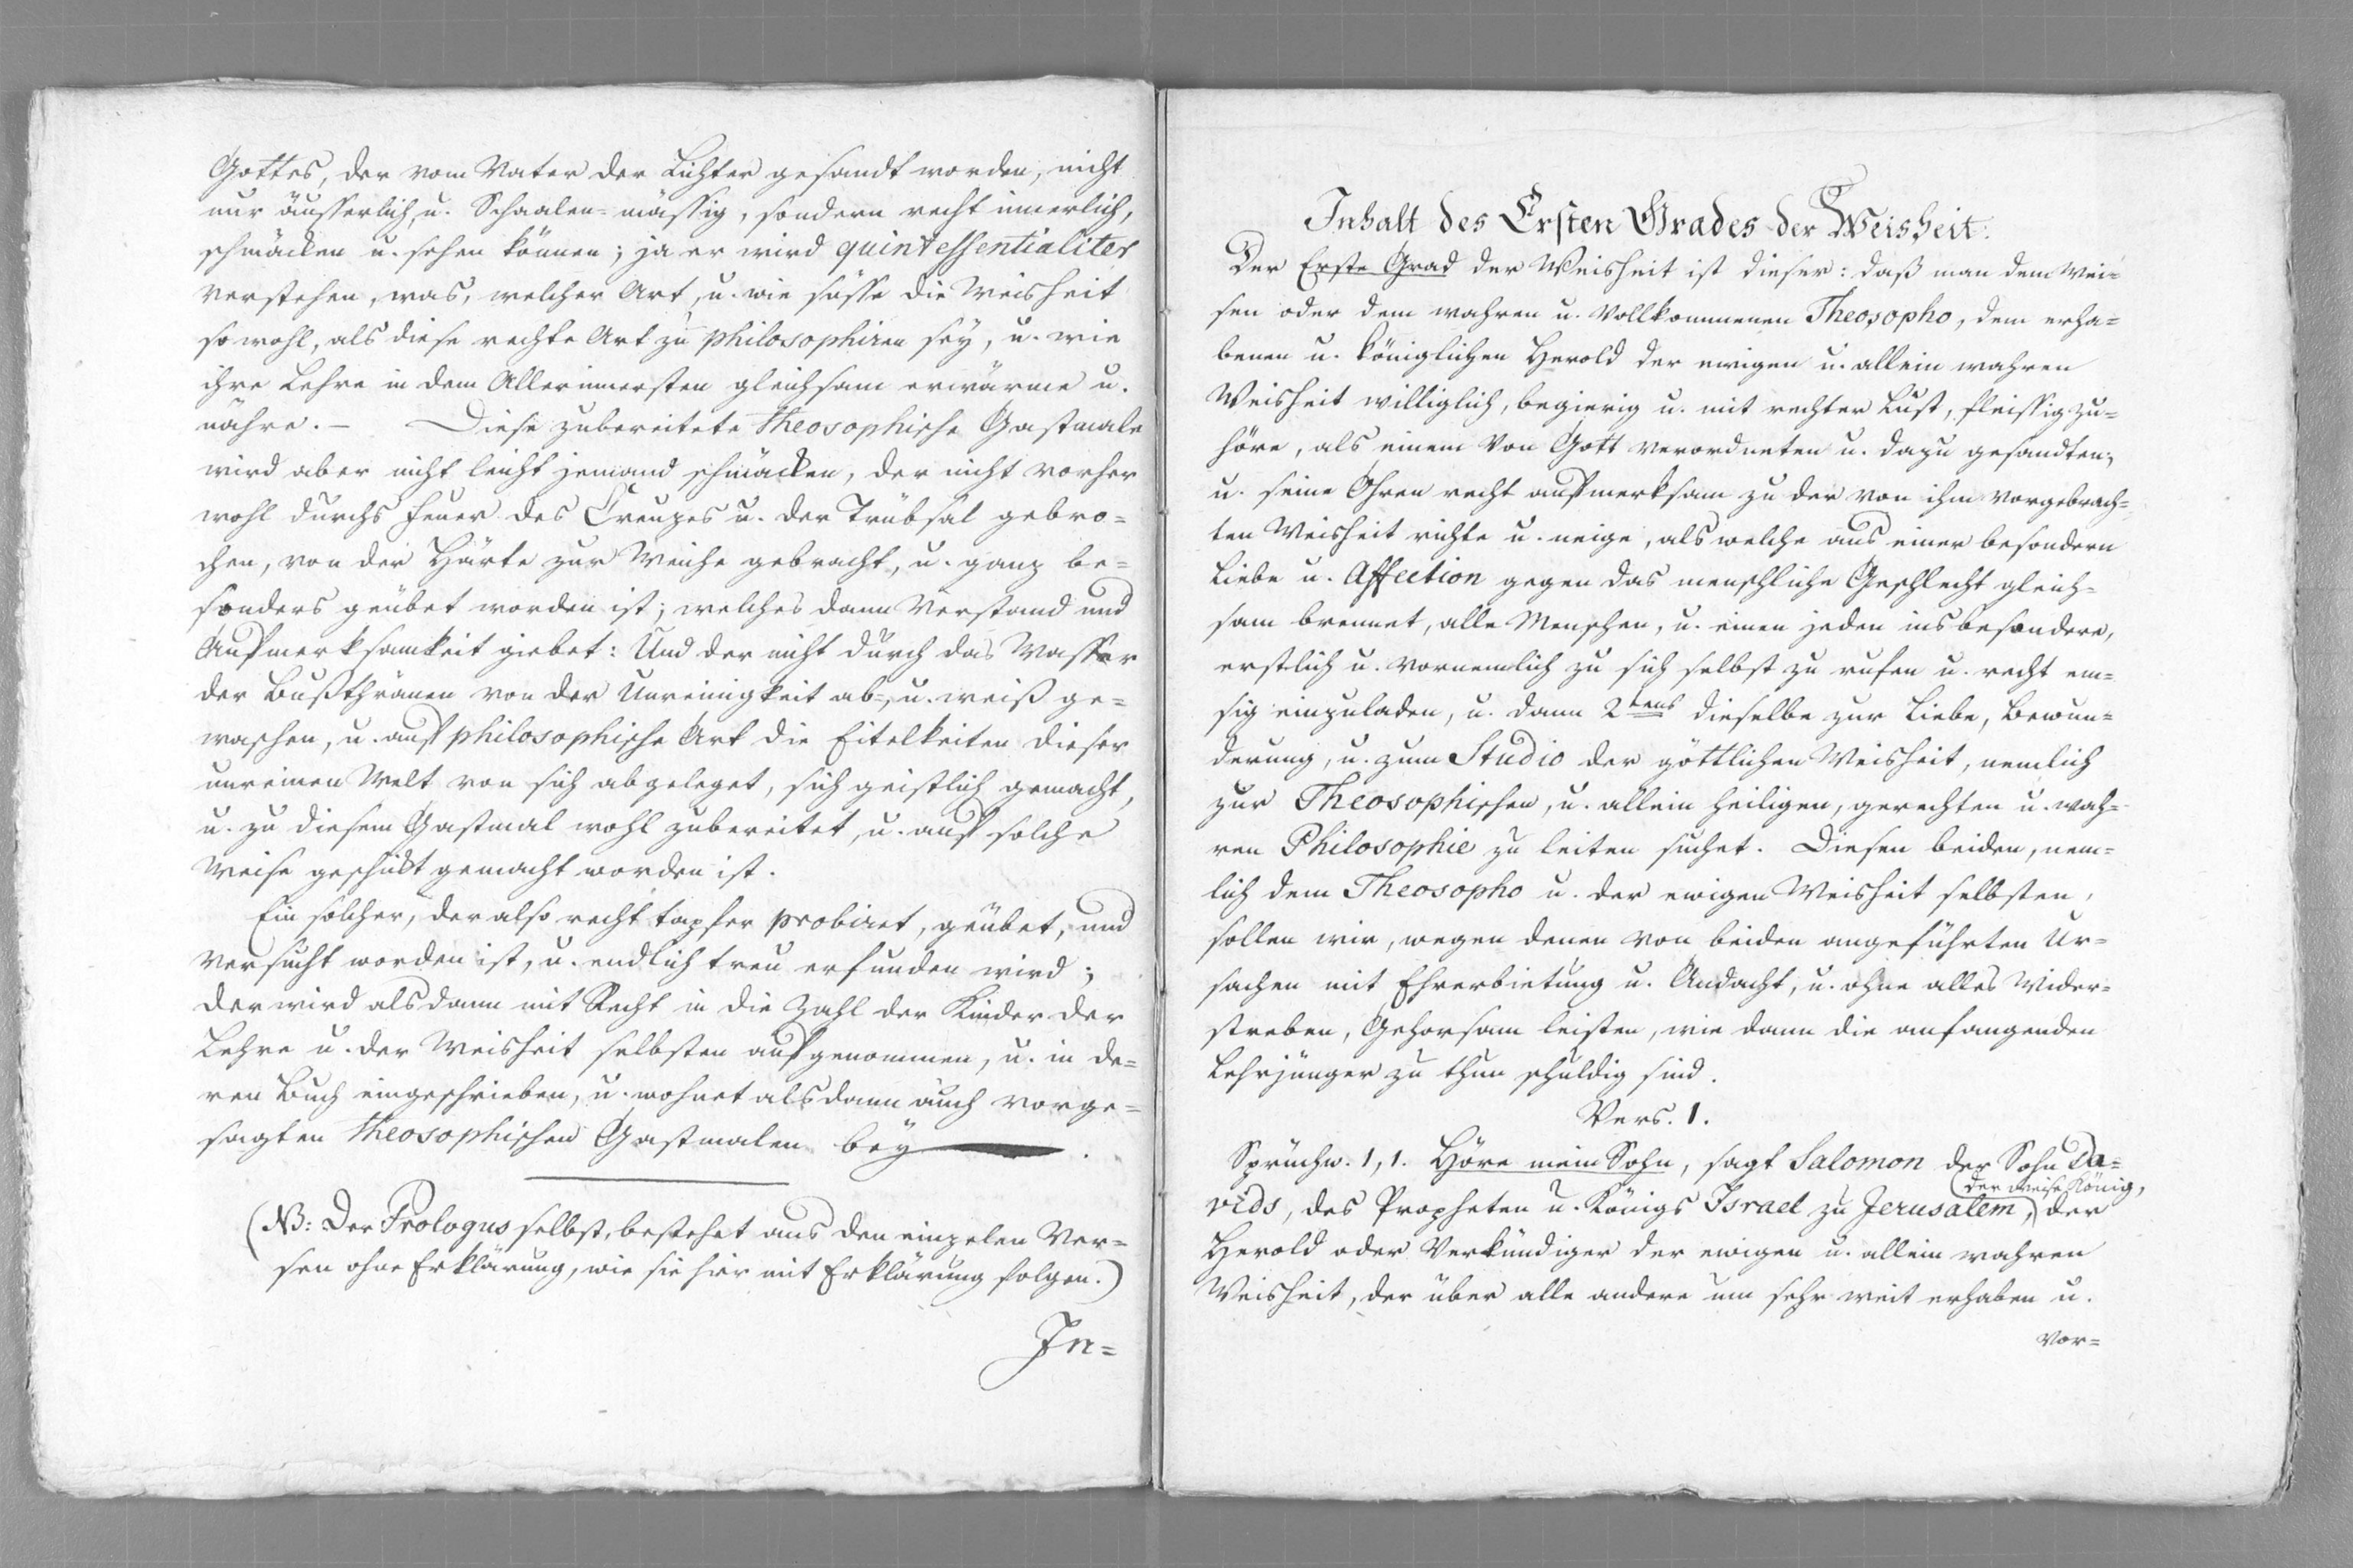 Gottes, der vom Vater der Lichter gesandt worden, nicht
nur äusserlich, u. Schaalen-mässig, sondern recht innerlich,
schmäcken u. sehen können; ja er wird quintessentialiter
verstehen, was, welcher Art, u. wie süsse die Weisheit
so wohl, als diese rechte Art zu philosophiren sey, u. wie
ihre Lehre in dem Allerinnersten gleichsam erwärme u.
nähre. — Diese zubereitete Theosophische Gastmale
wird aber nicht leicht jemand schmäcken, der nicht vorher
wohl durchs Feuer des Creuzes u. der Trübsal gebro=
chen, von der Härte zur Weiche gebracht, u. ganz be=
sonders geübet worden ist; welches dann Verstand und
Aufmerksamkeit giebet: Und der nicht durch das Wasser
der Bußthränen von der Unreinigkeit ab=, u. weiß ge=
waschen, u. auf philosophische Art die Eitelkeiten dieser
unreinen Welt von sich abgeleget, sich geistlich gemacht,
u. zu diesem Gastmal wohl zubereitet, u. auf solche
Weise geschikt gemacht worden ist.
Ein solcher, der also recht tapfer probiret, geübet, und
versucht worden ist, u. endlich treu erfunden wird;
der wird alsdann mit Recht in die Zahl der Kinder der
Lehre u. der Weisheit selbsten aufgenommen, u. in de=
ren Buch eingeschrieben, u. wohnet alsdann auch vorge=
sagten Theosophischen Gastmalen bey.
(NB: Der Prologus selbst, bestehet aus den einzelen Ver=
sen ohne Erklärung, wie sie hier mit Erklärung folgen.)
In=
Inhalt des Ersten Grades der Weisheit.
Der Erste Grad der Weisheit ist dieser: daß man dem Wei=
sen oder dem wahren u. vollkommenen Theosopho, dem erha=
benen u. königlichen Herold der ewigen u. allein wahren
Weisheit williglich, begierig u. mit rechter Lust, fleissig zu=
höre, als einem von Gott verordneten u. dazu gesandten,
u. seine Ohren recht aufmerksam zu der von ihm vorgebrach=
ten Weisheit richte u. neige, als welche aus einer besondern
Liebe u. Affection gegen das menschliche Geschlecht gleich=
sam brennet, alle Menschen, u. einen jeden ins besondere,
erstlich u. vornemlich zu sich selbst zu rufen u. recht em=
sig einzuladen, u. dann 2tens dieselbe zur Liebe, Bewun=
derung, u. zum Studio der göttlichen Weisheit, nemlich
zur Theosophischen, u. allein heiligen, gerechten u. wah=
ren Philosophie zu leiten suchet. Diesen beiden, nem=
lich dem Theosopho u. der ewigen Weisheit selbsten,
sollen wir, wegen denen von beiden angeführten Ur=
sachen mit Ehrerbietung u. Andacht, u. ohne alles Wider=
streben, Gehorsam leisten, wie dann die anfangenden
Lehrjünger zu thun schuldig sind.
Vers. 1.
Sprüchw. 1, 1. Höre mein Sohn, sagt Salomon der Sohn Da=
(der weise König,
vids, des Propheten u. Königs Israel zu Jerusalem,) der
Herold oder Verkündiger der ewigen u. allein wahren
Weisheit, der über alle andere um sehr weit erhaben u.
vor=